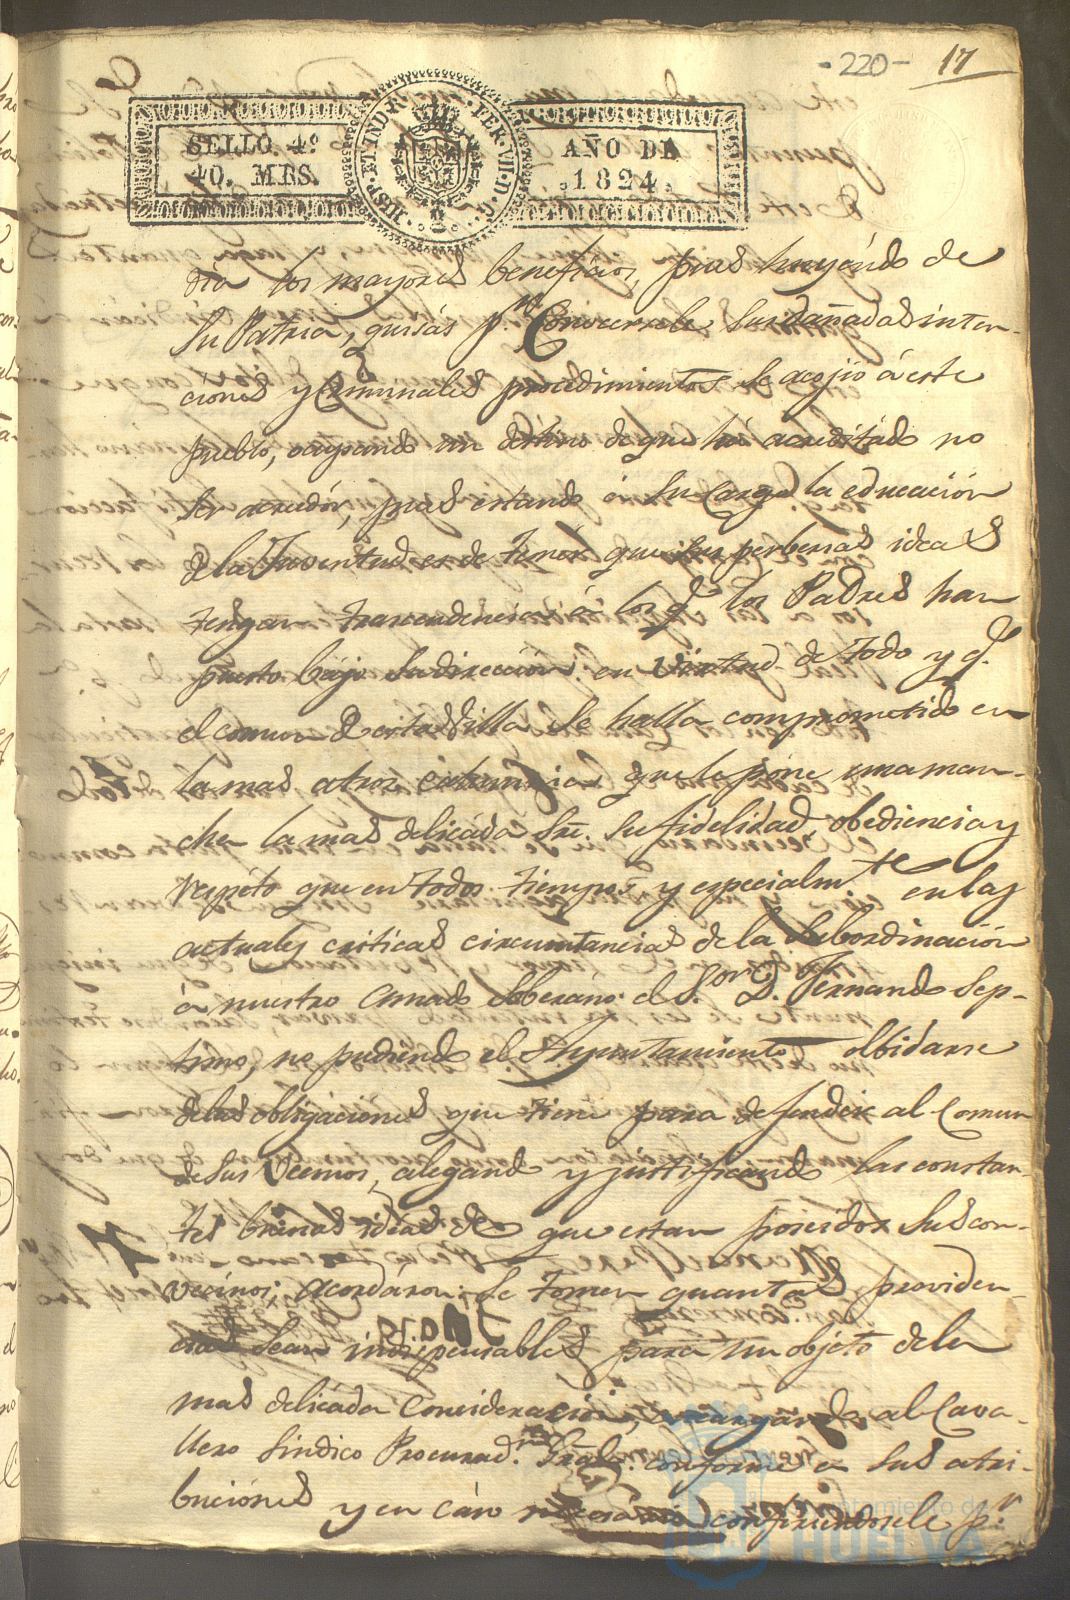 - 220 -
17
SELLO. 4º
40. MRS.
HISP. ET IND. R. FER. VII. D. G.
AÑO DE
1824.
dia los mayores beneficios, pues huyendo de
Su Patria, quisás pr. Conocersele sus dañadas inten-
ciones y Criminales procedimientos se acojió á este
pueblo, ocupando un destino de que há acreditado no
ser acredór, pues estando á su Cargo la educación
de la Juventud es de temer que sus perbersas ideas
tengan trascendencia á los q. los Padres han
puesto bajo su dirección: en Virtud de todo y q.
el comun de esta Villa se halla comprometido en
la mas atroz calumnia que le pone una man-
cha la mas delicada Sre. su fidelidad, obediencia y
respéto que en todos tiempos y especialmte en las
actuales criticas circunstancias de la subordinación
á nuestro amado Soberano el Sor. D. Fernando Sep-
timo, no pudiendo el Ayuntamiento olbidarse
de las obligaciones que tiene para defender al Comun
de sus Vecinos, alegando y justificando las constan-
tes buenas ideas de que estan poseidos sus con-
vecinos; acordáron: se tomen quantas providen-
cias sean indispensables para un objeto de la
mas delicáda Consideración, encargandose al Cava-
llero Sindico Procurad. Gral. conforme a sus atri-
buciones y en caso necesário confiriendosele pr.
Ayuntamiento de
HUELVA